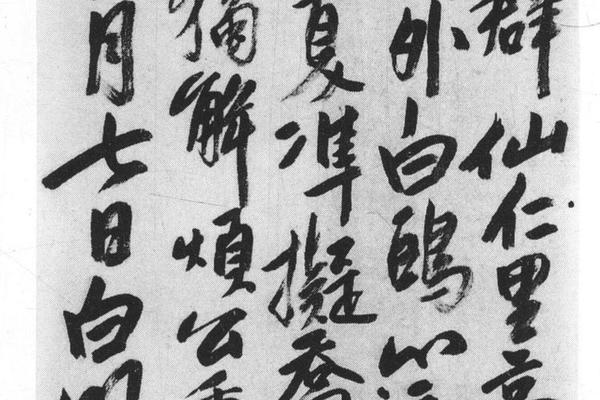 群仙仁里
外白鷗心
夏準擬喬
獨解煩公
月七日白